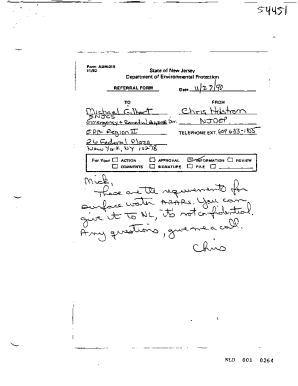 54451
Form ADM-019
11/82
State of New Jersey
Department of Environmental Protection
REFERRAL FORM
Date 11/27/90
TO
FROM
Michael Gilbert
Chris
Emergency + Remedial Response Div.
NJDEP
EPA Region II
TELEPHONE EXT. 609 633-1455
26 Federal Plaza
New York, NY 10278
For Your ACTION APPROVAL INFORMATION REVIEW
COMMENTS SIGNATURE FILE
Mick,
These are the requirements for
surface water ARARs. You can
give it to NL, it's not confidential.
Any questions, give me a call.
Chris
NLD 001 0264